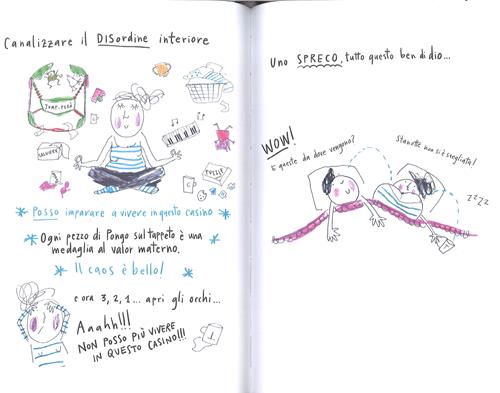 Canalizzare il DISordine interiore
Jump.feed
PUZZLE
* Posso imparare a vivere in questo casino *
* Ogni pezzo di Pongo sul tappeto è una
medaglia al valor materno. *
* Il caos è bello! *
e ora 3, 2, 1... apri gli occhi...
Aaahh!!!
NON POSSO PIÙ VIVERE
IN QUESTO CASINO!!!
Uno SPRECO, tutto questo ben di dio...
WOW!
E queste da dove vengono?
Stanotte non si è svegliata!
ZZZZ